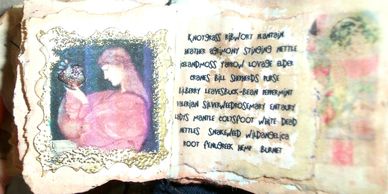 KNOTGRASS RIBWORT PLANTAIN
HEATHER AGRIMONY STINGING NETTLE
ICELANDMOSS YARROW LOVAGE ELDER
CRANES BILL SHEPHERDS PURSE
BILBERRY LEAVESBUCK-BEAN PEPPERMINT
VALERIAN SILVERWEEDROSEMARY CENTAURY
LADYS MANTLE COLTSFOOT WHITE DEAD
NETTLES SNAKEWEED WILDANGELICA
ROOT FENUGREEK HEMP BURNET